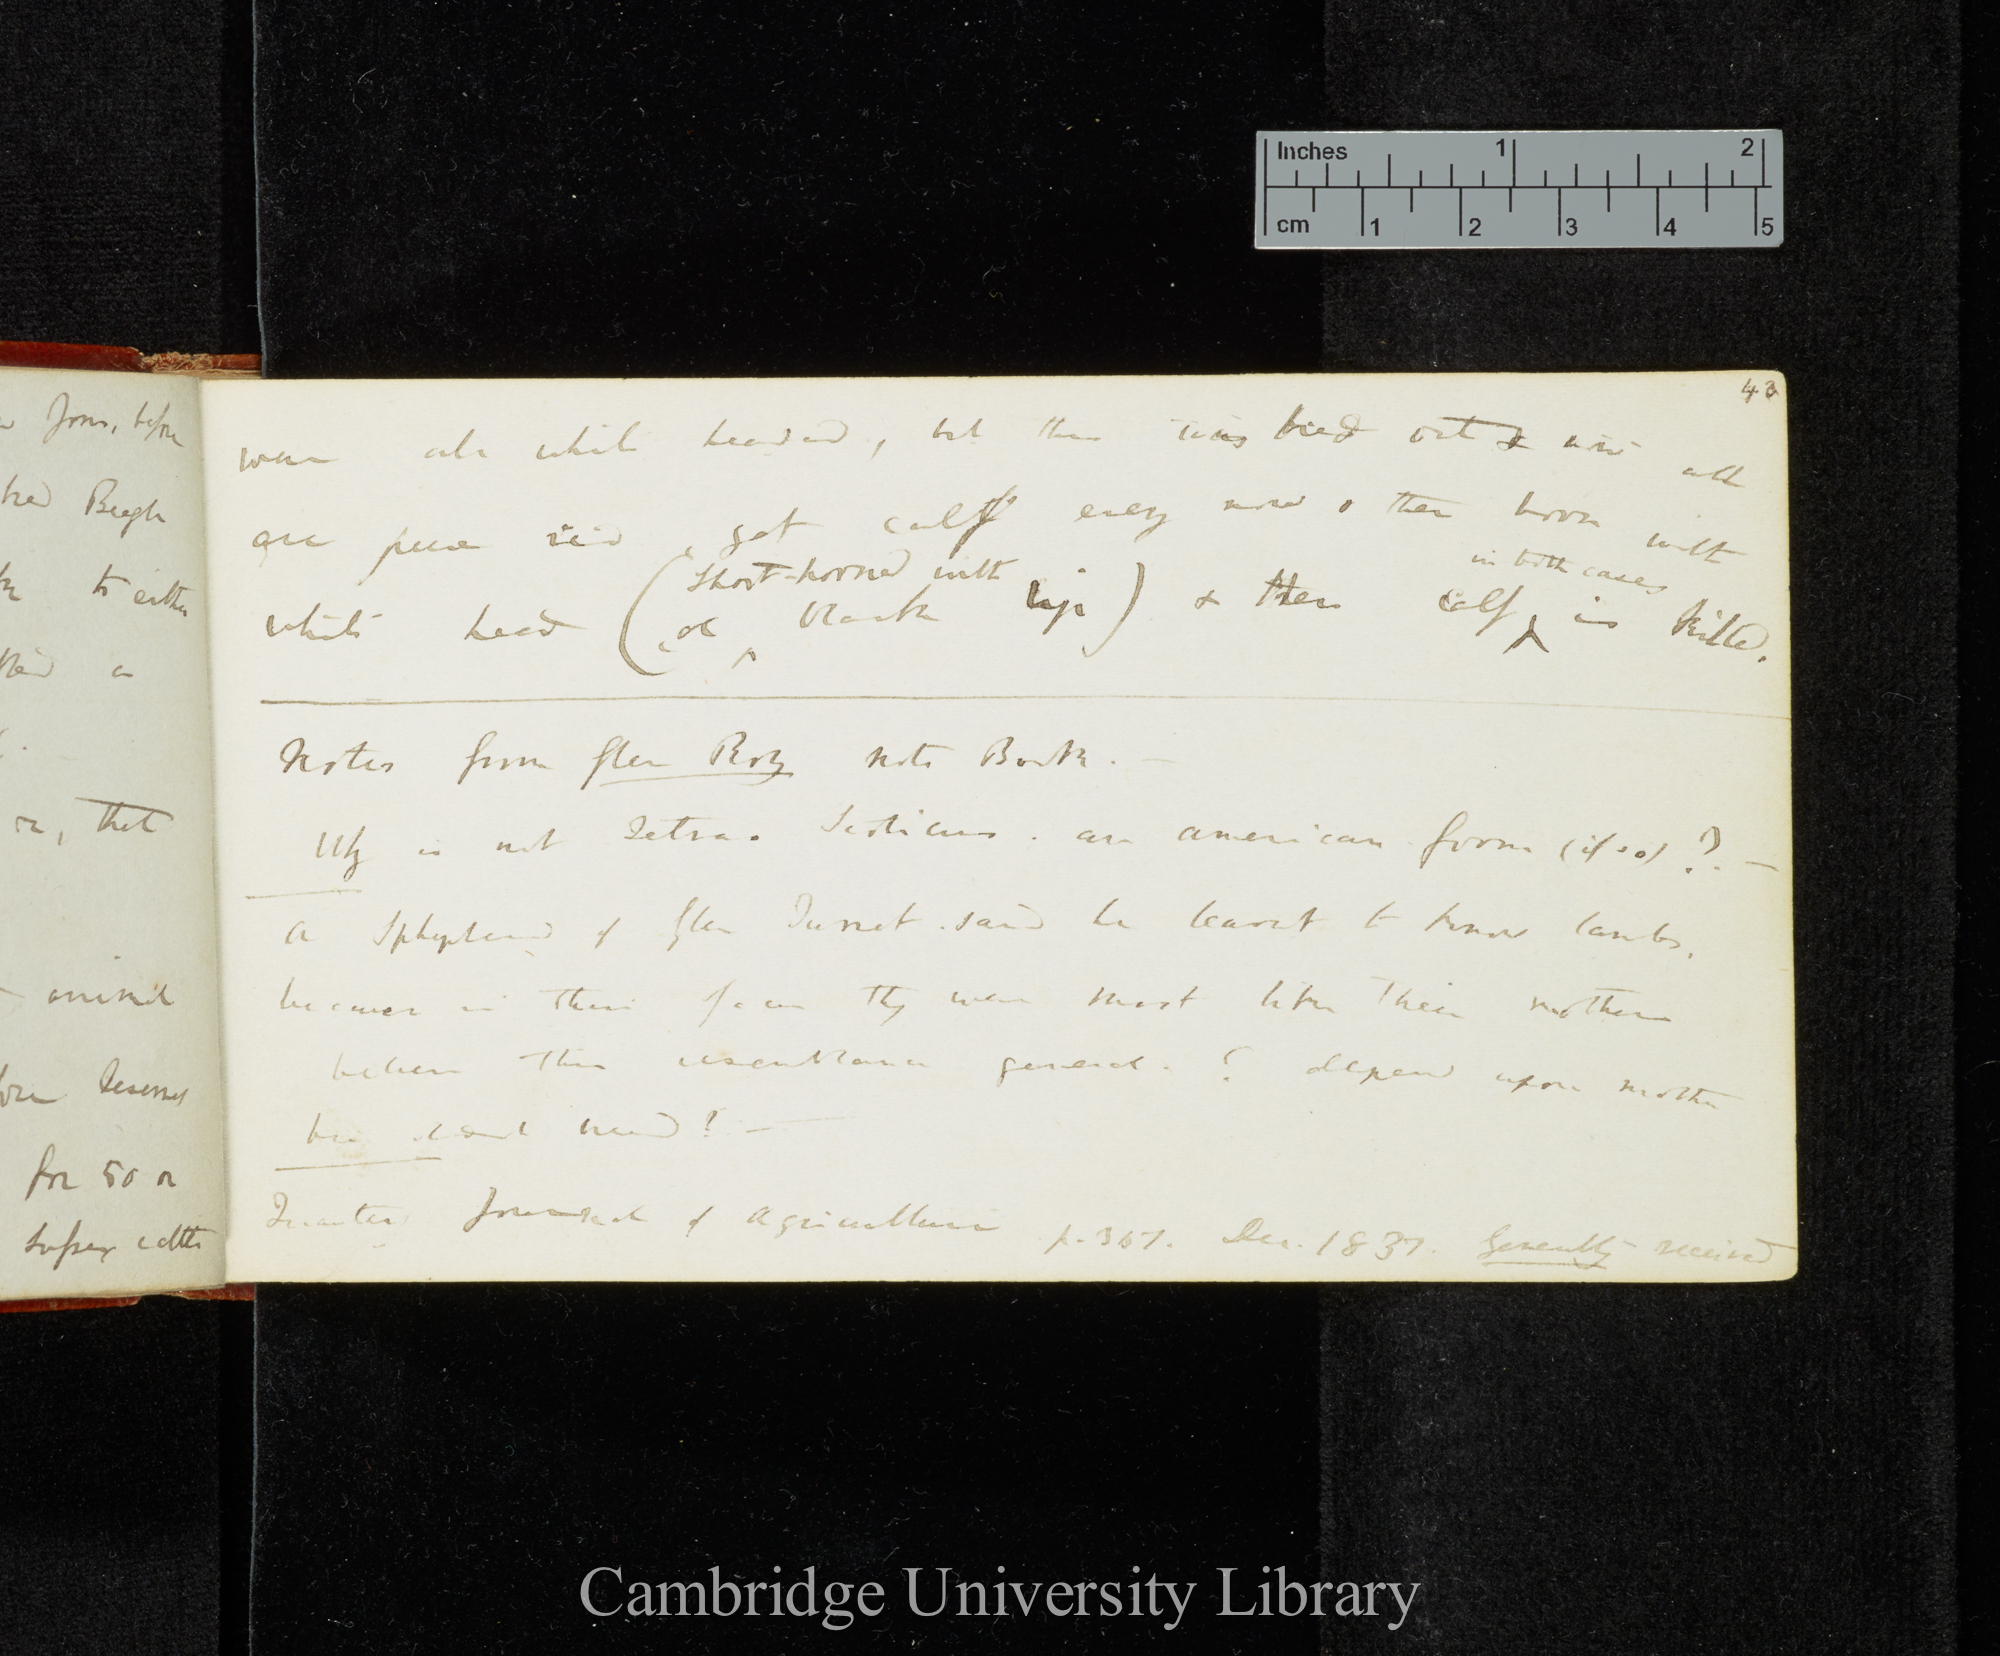 Inches 1 2
cm 1 2 3 4 5
43
were all white headed, but this was bred out & now all
are pure red, yet calf every now & then born with
short-horned with
in both cases
white head (or black lip) & then calf is killed.
Notes from Glen Roy note Book. —
Why is not Tetrao Scoticus. an american form (if so)?. —
A Shepherd of Glen Turret. said he learnt to know lambs,
because in their faces they were most like their mothers
believes this resemblance general. ? depend upon mother
being bred ? —
Journal of Agriculture p. 367. Dec. 1837. Generally received
Jones, before
Beagle
to either
or, that
animal
for 50 or
Sussex cattle
Cambridge University Library